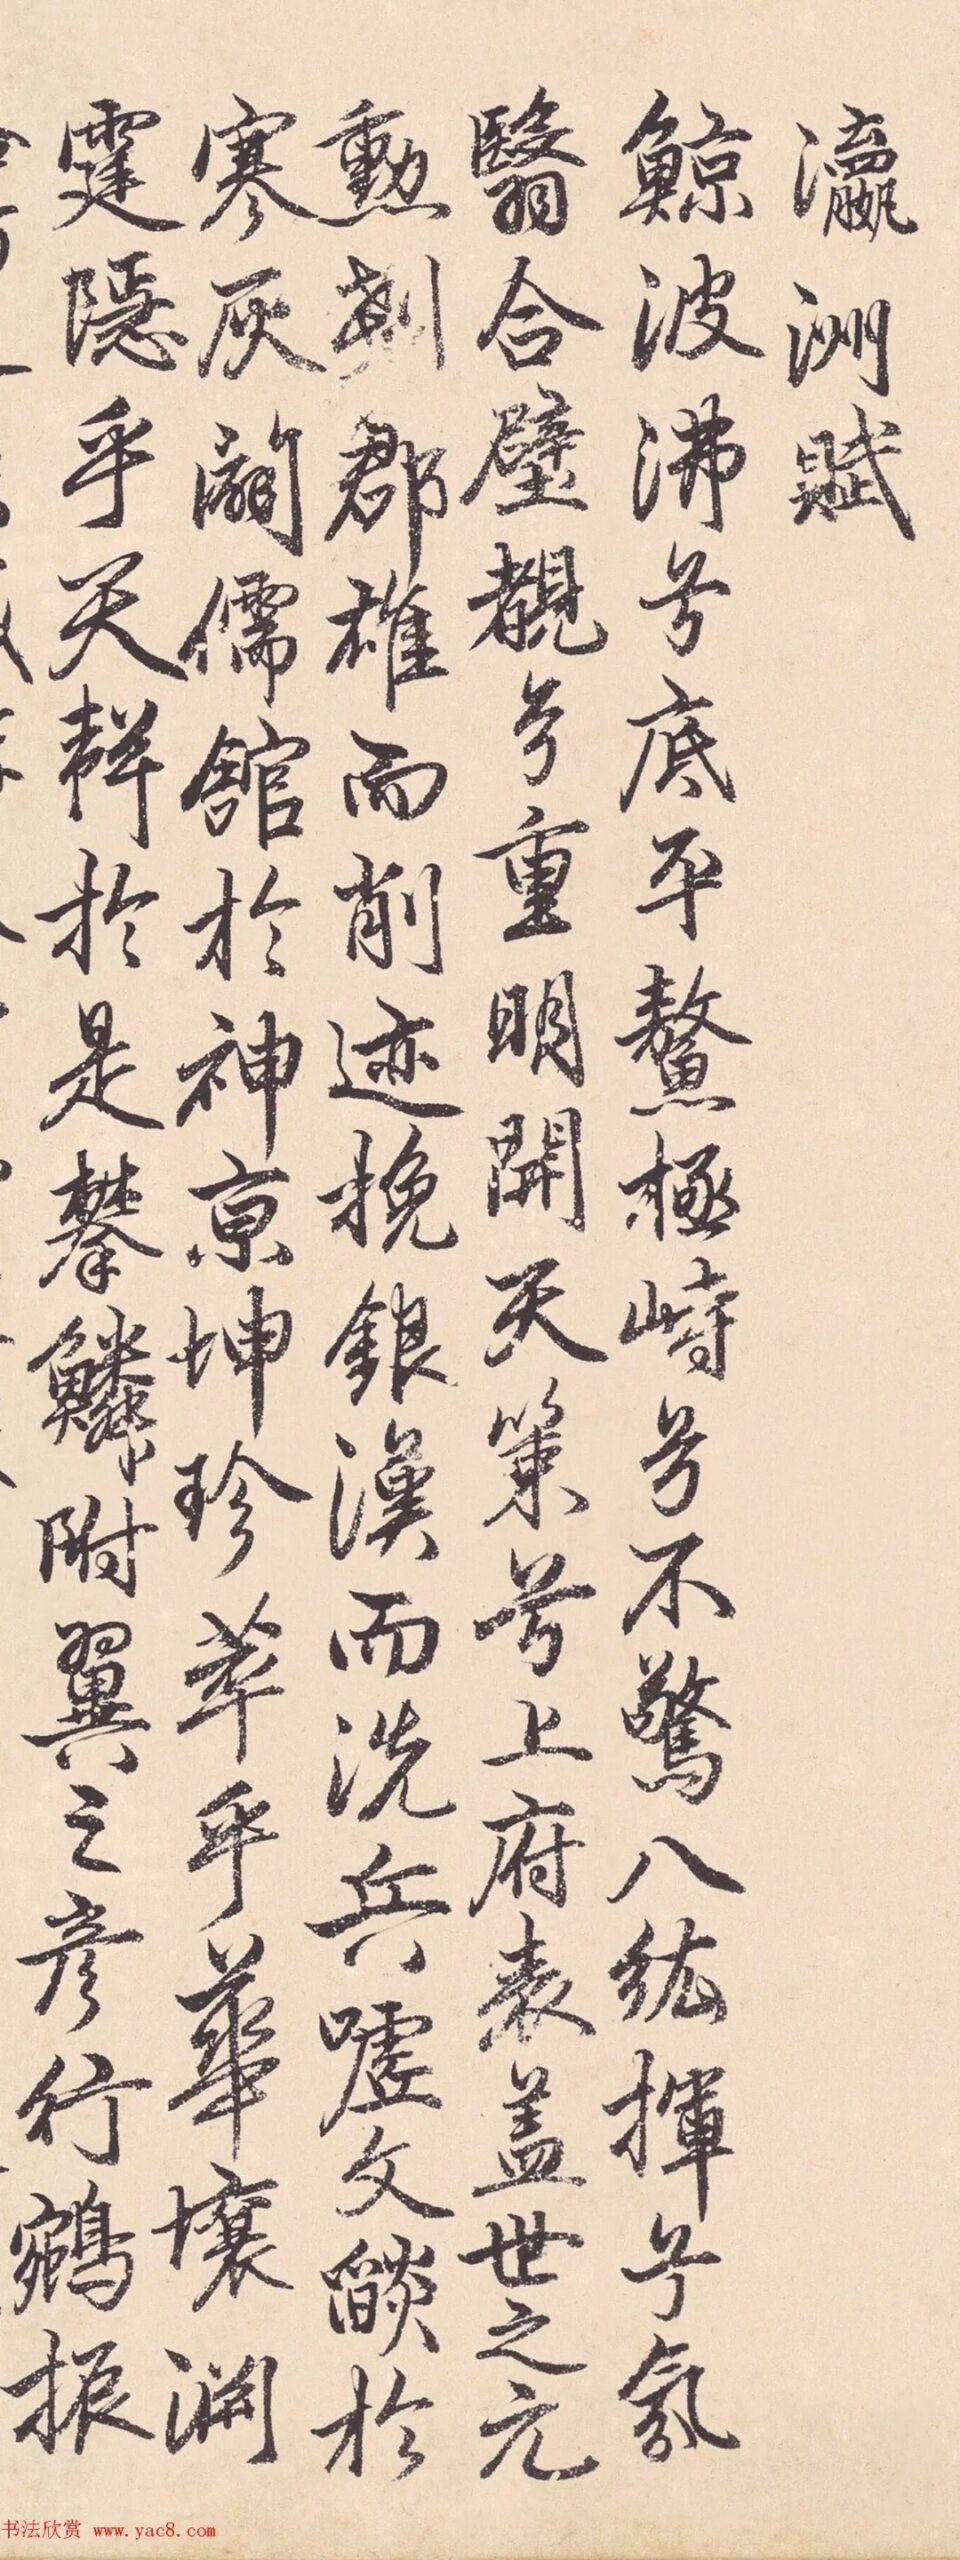 瀛洲賦
鯨波沸兮底平鰲極峙兮不驚八紘揮兮氛
翳合璧覩兮重明開天策兮上府表盖世之元
勲剗郡雄而削迹挽銀漢而洗兵噓文燄於
寒灰闢儒舘於神京坤珍萃乎華壤淵
霆隱乎天聲於是攀鱗附翼之彦行鵷振
书法欣赏 www.yac8.com